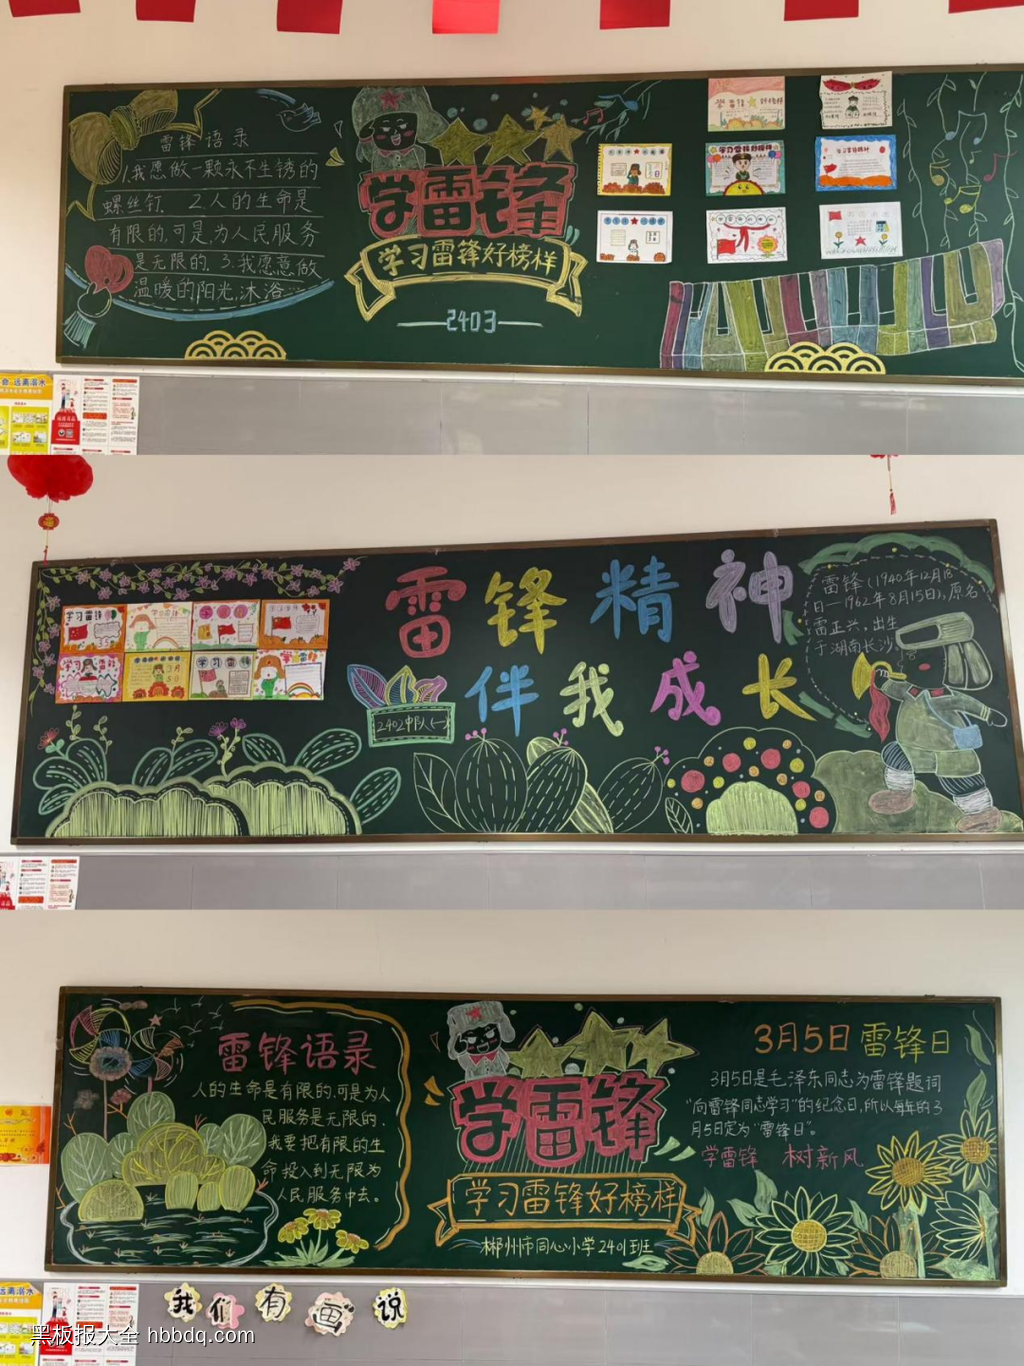 雷锋语录
1.我愿做一颗永不生锈的
螺丝钉. 2.人的生命是
有限的,可是,为人民服务
是无限的. 3.我愿意做
温暖的阳光,沐浴…
学雷锋
学习雷锋好榜样
2403
雷锋精神
伴我成长
2402中队(一)
学习雷锋
学习雷锋
雷锋(1940年12月18
日—1962年8月15日),原名
雷正兴,出生
于湖南长沙。
雷锋语录
人的生命是有限的,可是为人
民服务是无限的,
我要把有限的生
命投入到无限为
人民服务中去。
学雷锋
学习雷锋好榜样
郴州市同心小学2401班
3月5日 雷锋日
3月5日是毛泽东同志为雷锋题词
“向雷锋同志学习”的纪念日,所以每年的3
月5日定为“雷锋日”。
学雷锋 树新风
我们有画说
黑板报大全 hbbdq.com